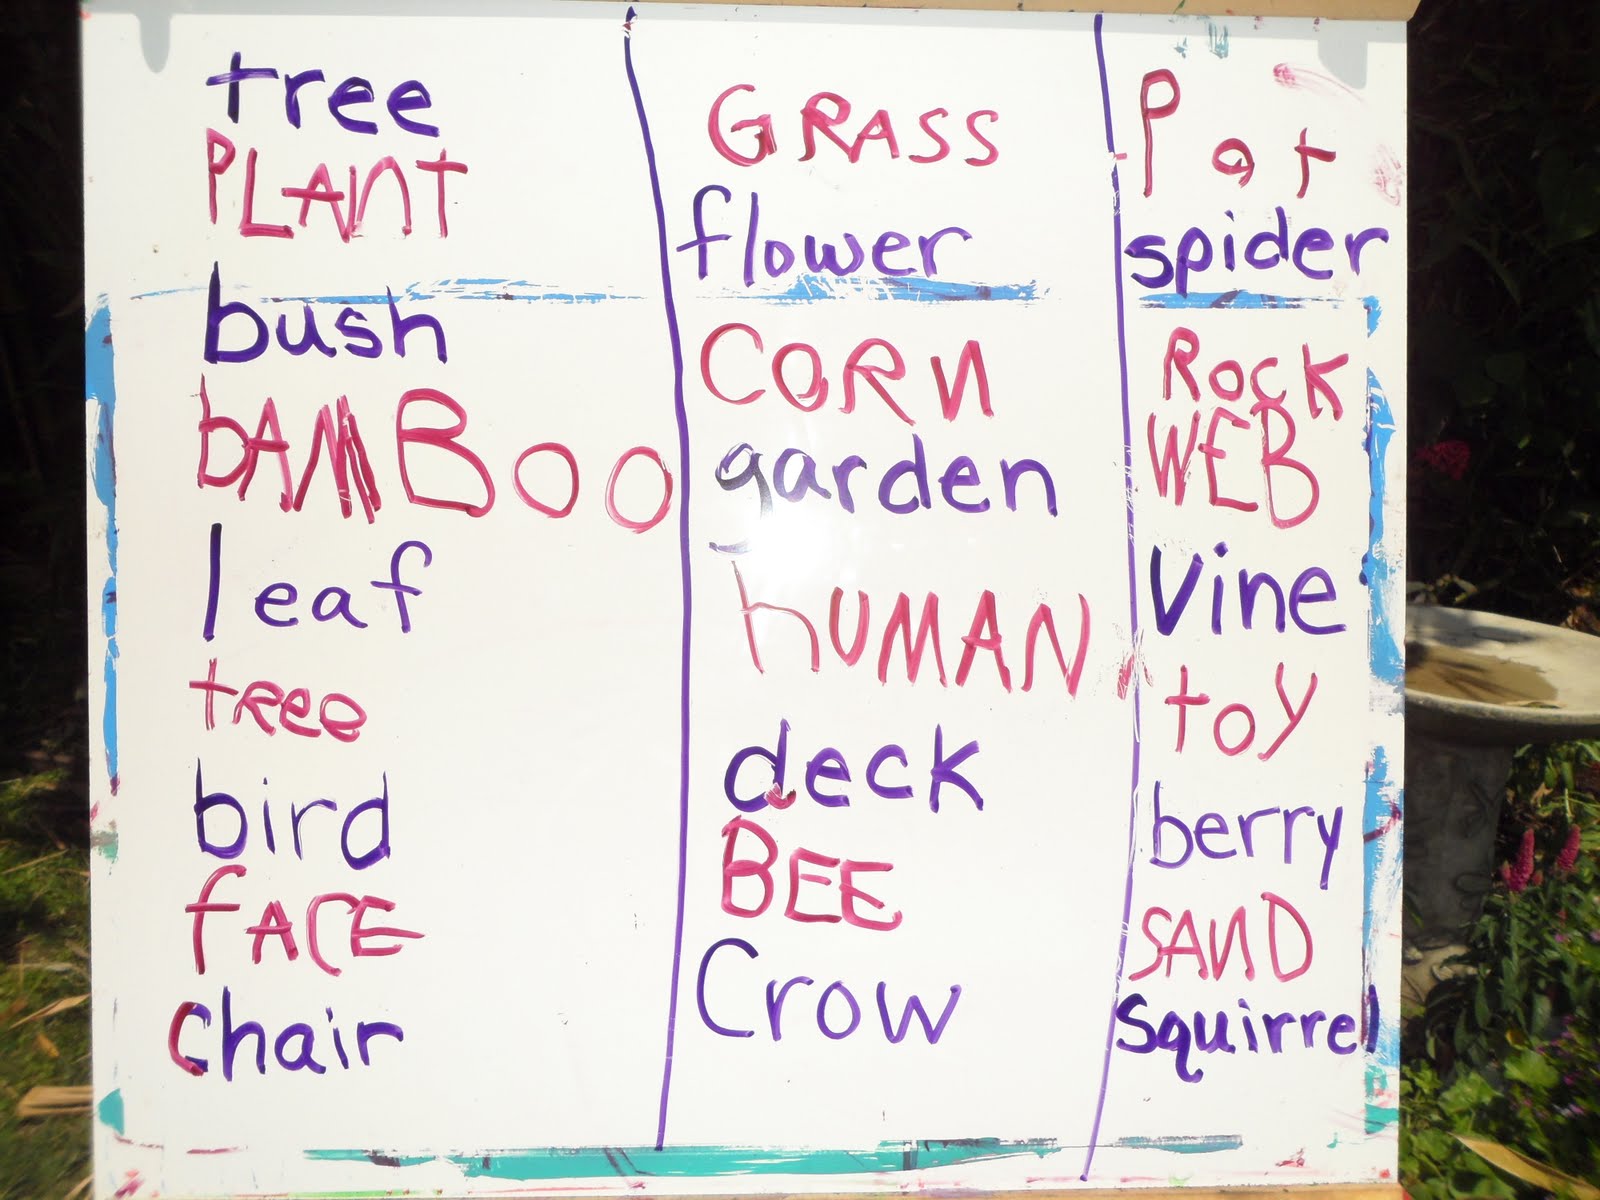 tree
PLANT
bush
bAMBoo
leaf
tree
bird
fACE
chair
GRASS
flower
CORN
garden
hUMAN
deck
BEE
Crow
Pot
spider
RocK
WEB
Vine
toy
berry
SAND
squirrel